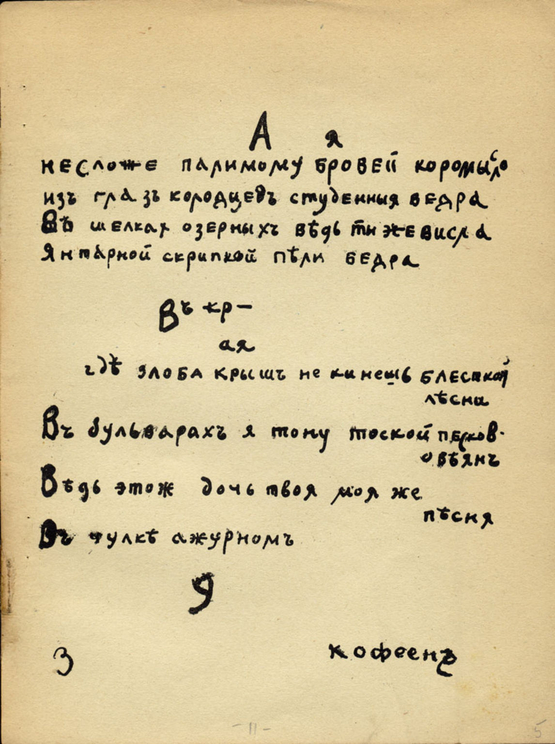 А я
несложе палимому бровей коромысло
изъ глазъ колодцевъ студенныя ведра
Въ шелкахъ озерныхъ вѣдь ты же висла
янтарной скрипкой пѣли бедра
Въ кр-
ая
гдѣ злоба крышъ не кинешь блесткой
лѣсни
Въ бульварахъ я тону тоской песков-
овѣянъ
Вѣдь этож дочь твоя моя же
пѣсня
Въ чулкѣ ажурномъ
У
кофеенъ
3
-11-
5